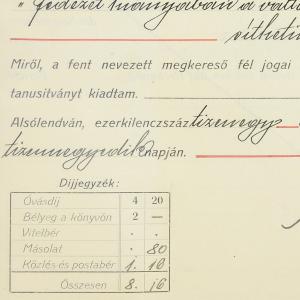 " fedezet hiányában a
síthető
Miről, a fent nevezett megkereső fél jogai
tanusitványt kiadtam.
Alsólendván, ezerkilenczszáz tizenegy
tizennegyedik napján.
Díjjegyzék:
Óvásdíj 4 20
Bélyeg a könyvön 2 —
Vitelbér . .
Másolat . 80
Közlés és postabér 1. 16
Összesen 8. 16